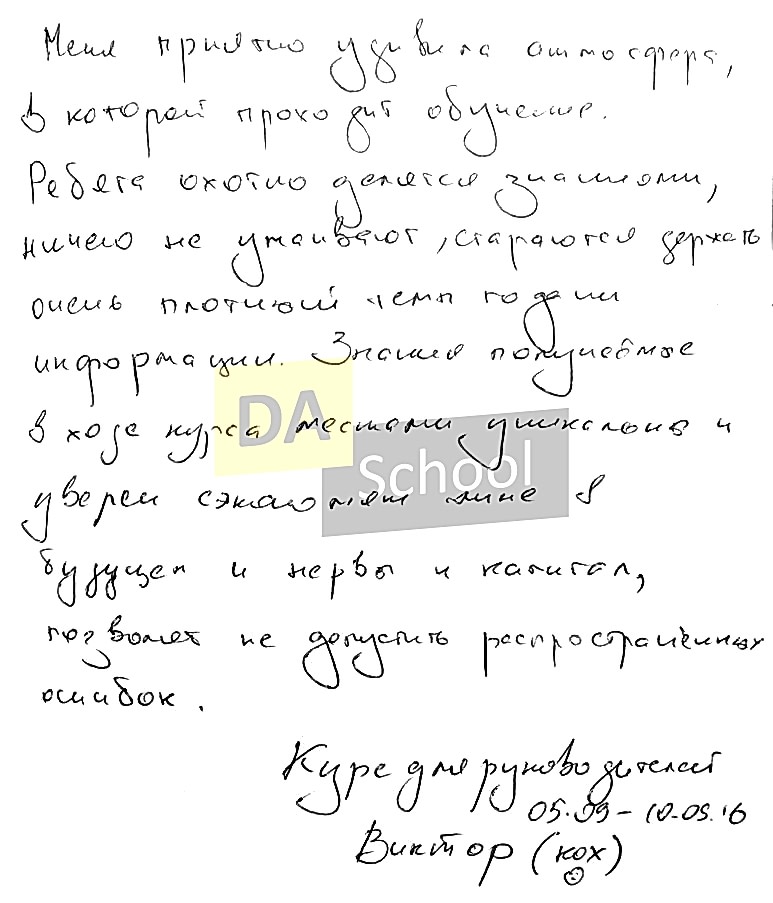 Меня приятно удивила атмосфера,
в которой проходит обучение.
Ребята охотно делятся знаниями,
ничего не утаивают, стараются держать
очень плотный темп подачи
информации. Знания полученные
DA
в ходе курса местами уникальны и
School
уверен сэкономят мне в
будущем и нервы и капитал,
позволят не допустить распространённых
ошибок.
Курс для руководителей
05.09 – 10.09.16
Виктор (кох)